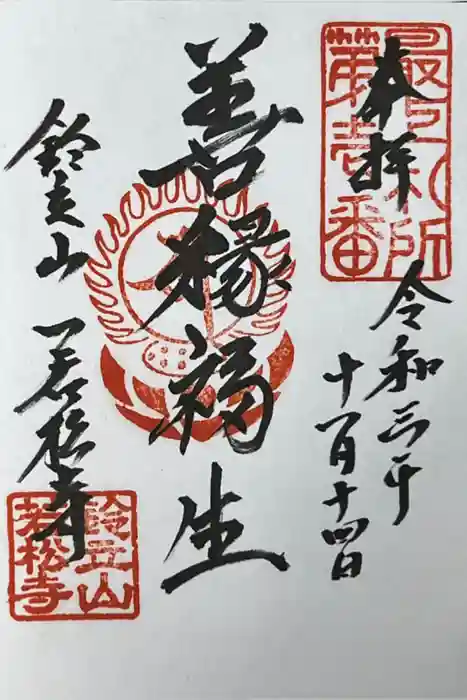 最上札所
第壱番
奉拝
令和三年
十一月十四日
善縁福生
鈴立山 若松寺
鈴立山
若松寺